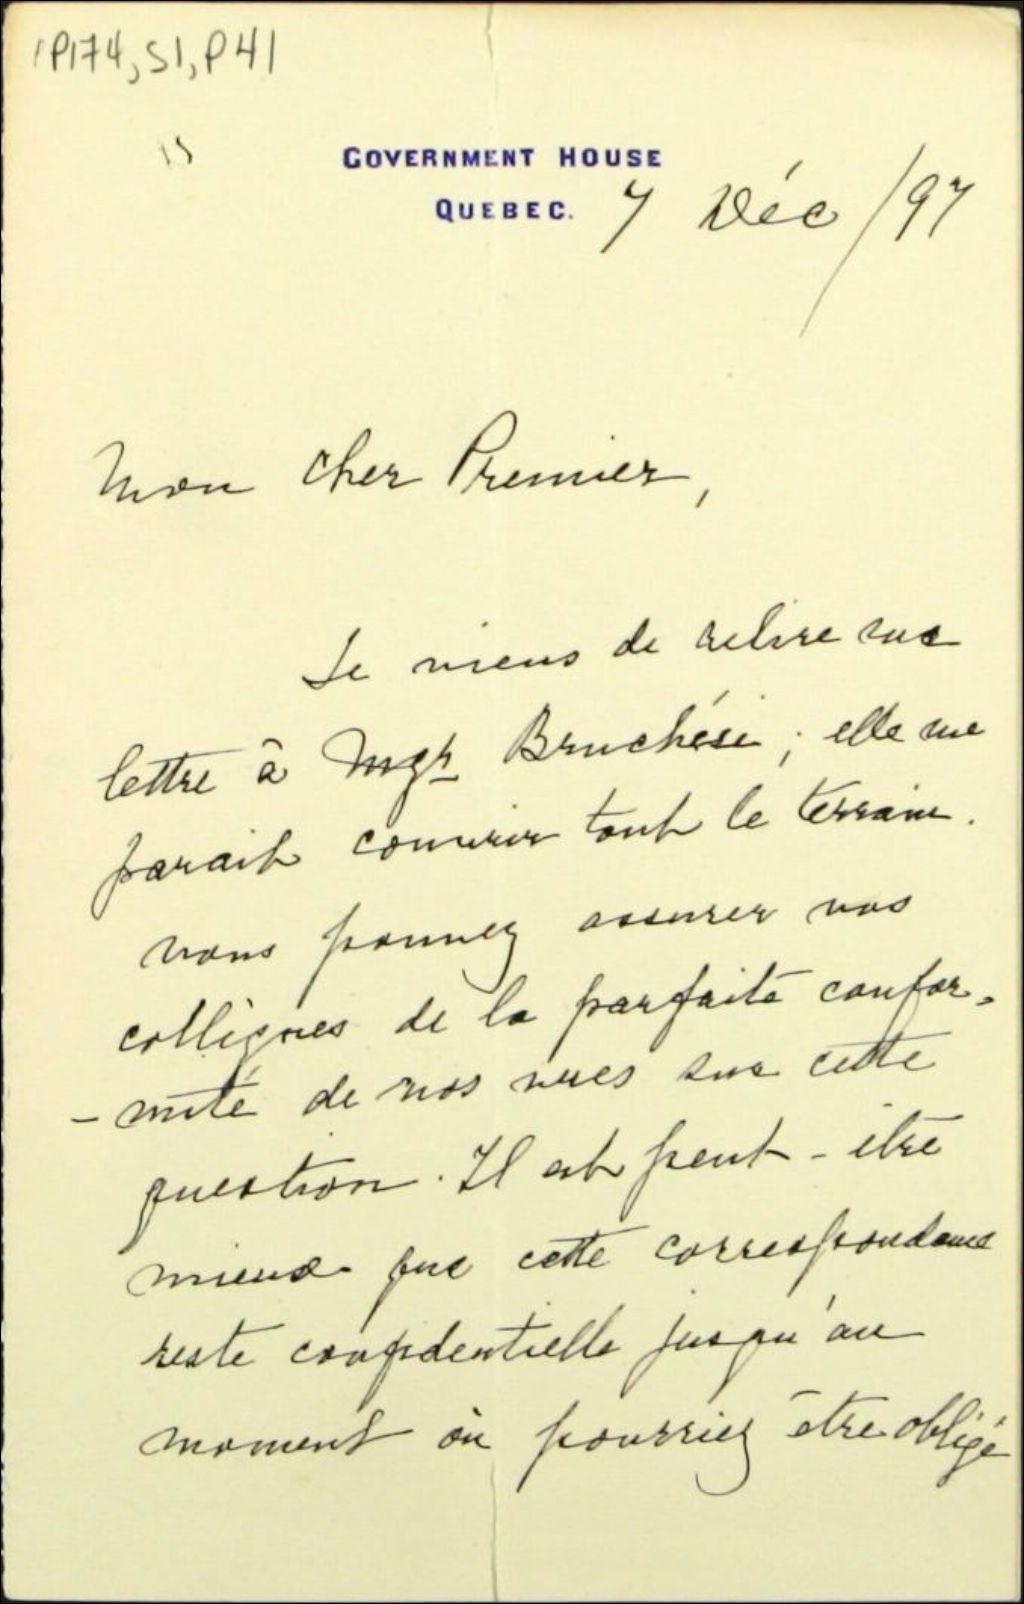 P174, S1, P41
15
GOVERNMENT HOUSE
QUEBEC. 7 Déc /97
Mon cher Premier,
Je viens de relire ma
lettre à Mgr Bruchési ; elle me
parait couvrir tout le terrain.
Vous pouvez assurer vos
collègues de la parfaite confor-
-mité de nos vues sur cette
question. Il est peut-être
mieux que cette correspondance
reste confidentielle jusqu'au
moment où pourriez être obligé